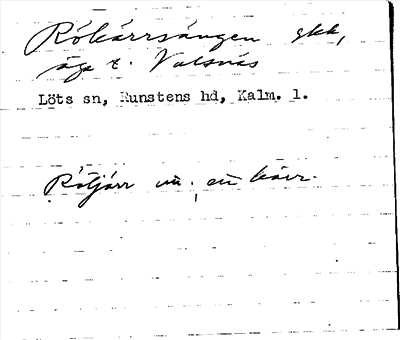 Rökärrsängen skk,
äga t. Valsnäs
Löts sn, Runstens hd, Kalm. l.
Rötjärr är en kärr.